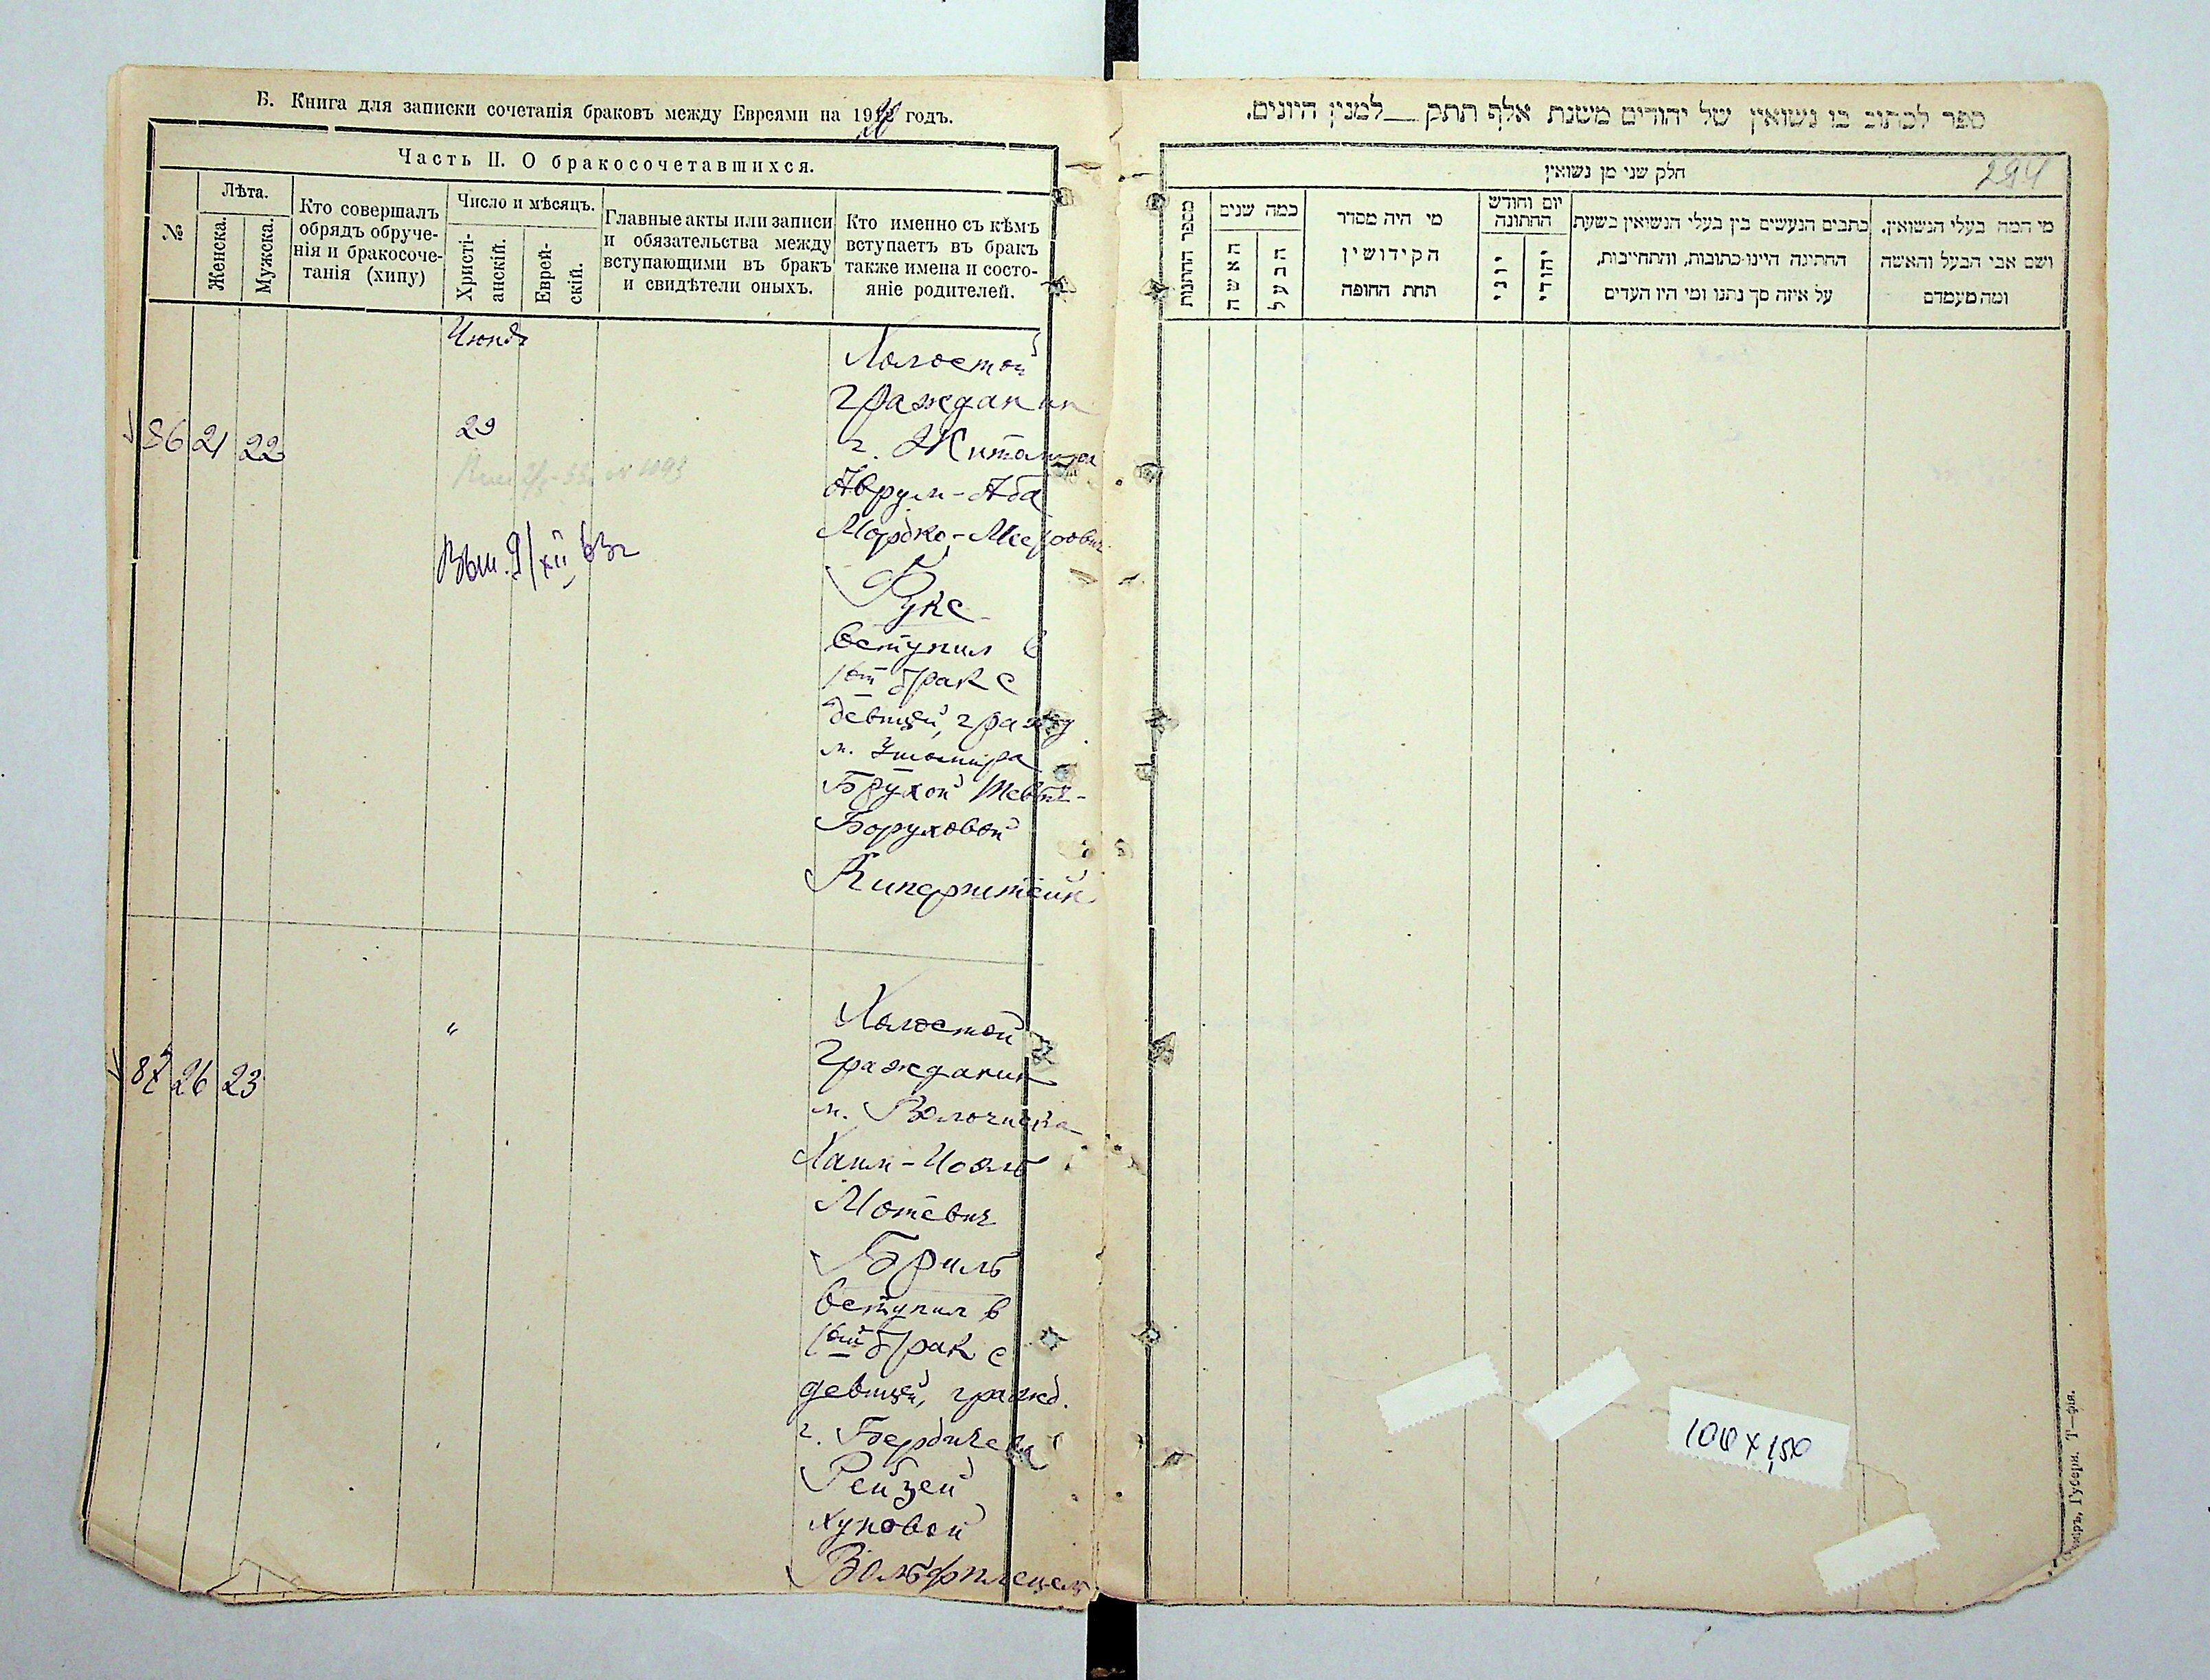 Б. Книга для записки сочетанія браковъ между Евреями на 1920 годъ.
Часть II. О бракосочетавшихся.
№
Лѣта.
Женска.
Мужска.
Кто совершалъ
обрядъ обруче-
нія и бракосоче-
танія (хипу)
Число и мѣсяцъ.
Христі-
анскій.
Еврей-
скій.
Главные акты или записи
и обязательства между
вступающими въ бракъ
и свидѣтели оныхъ.
Кто именно съ кѣмъ
вступаетъ въ бракъ
также имена и состо-
яніе родителей.
86 21 22
29
Выд. 9/XII 63г
Холостой
гражданин
г. Житомира
Аврум-Аба
Мордко-Меерович
Фукс
вступил в
1ый брак с
девицей, гражд
м. Ушомира
Брухой Шевой-
Боруховой
Куперштейн
87 26 23
"
Холостой
Гражданин
м. Волочиска
Хаим-Иойль
Мотевич
Бриль
вступил в
1ый брак с
девицей, гражд.
г. Бердичева
Рейзей
Хуновой
ספר לכתוב בו נשואין של יהודים משנת אלף תתק__למנין היונים.
294
חלק שני מן נשואין
מספר החתונות
כמה שנים
האשה
הבעל
מי היה מסדר
הקידושין
תחת החופה
יום וחודש
החתונה
יוני
יהודי
כתבים הנעשים בין בעלי הנשואין בשעת
החתינה היינו-כתובות, והתחייבות,
על איזה סך נתנו ומי היו העדים
מי המה בעלי הנשואין.
ושם אבי הבעל והאשה
ומה מעמדם
100 x 150
Губерн. Т—фія.